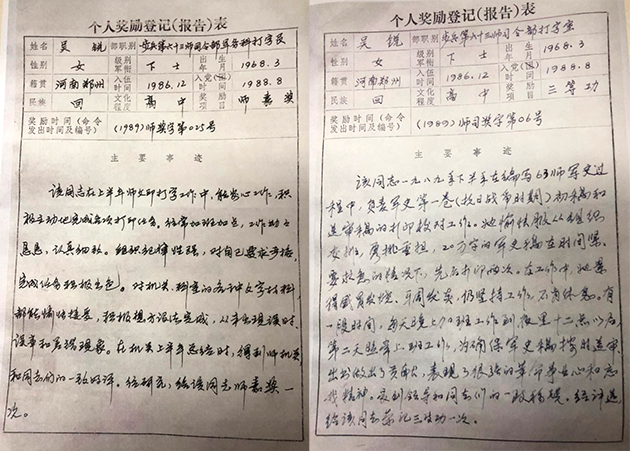 个人奖励登记(报告)表
姓名 吴锐 部职别 步兵第六十三师司令部军务科打字员
性别 女 级别军衔 下士 出生年月 1968.3
籍贯 河南郑州 入伍时间 1986.12 入党(团)时间 1988.8
民族 回 文化程度 高中 奖励项目 师嘉奖
奖励时间(命令发出时间及编号) (1989)师奖字第025号
主要事迹
该同志在上半年师文印打字工作中,能安心工作,积
极主动地完成每次打印任务。经常加班加点,工作勤勤
恳恳,认真细致。组织纪律性强,对自己要求严格,
完成任务积极出色。对机关、科室的各种文字材料
都能愉快接受,积极想方设法完成,从未出现误时、
误事和差错现象。在机关上半年总结时,得到师机关
和同志们的一致好评。经研究,给该同志师嘉奖一
次。
个人奖励登记(报告)表
姓名 吴锐 部职别 步兵第六十三师司令部打字室
性别 女 级别军衔 下士 出生年月 1968.3
籍贯 河南郑州 入伍时间 1986.12 入党(团)时间 1988.8
民族 回 文化程度 高中 奖励项目 三等功
奖励时间(命令发出时间及编号) (1989)师司奖字第06号
主要事迹
该同志一九八九年下半年在编写63师军史过
程中,负责军史第一卷(抗日战争时期)初稿和
送审稿的打印校对工作。她愉快服从组织
安排,勇挑重担,20万字的军史稿在时间紧、
要求急的情况下,先后打印两次。在工作中,她累
得感冒发烧、牙周发炎,仍坚持工作,不肯休息。有
一段时间,每天晚上加班工作到夜里十二点以后,
第二天照常上班工作,为确保军史稿按时送审、
出书做出了贡献,表现了很强的革命事业心和
精神。受到领导和同志们的一致称赞。经评选
给该同志荣记三等功一次。